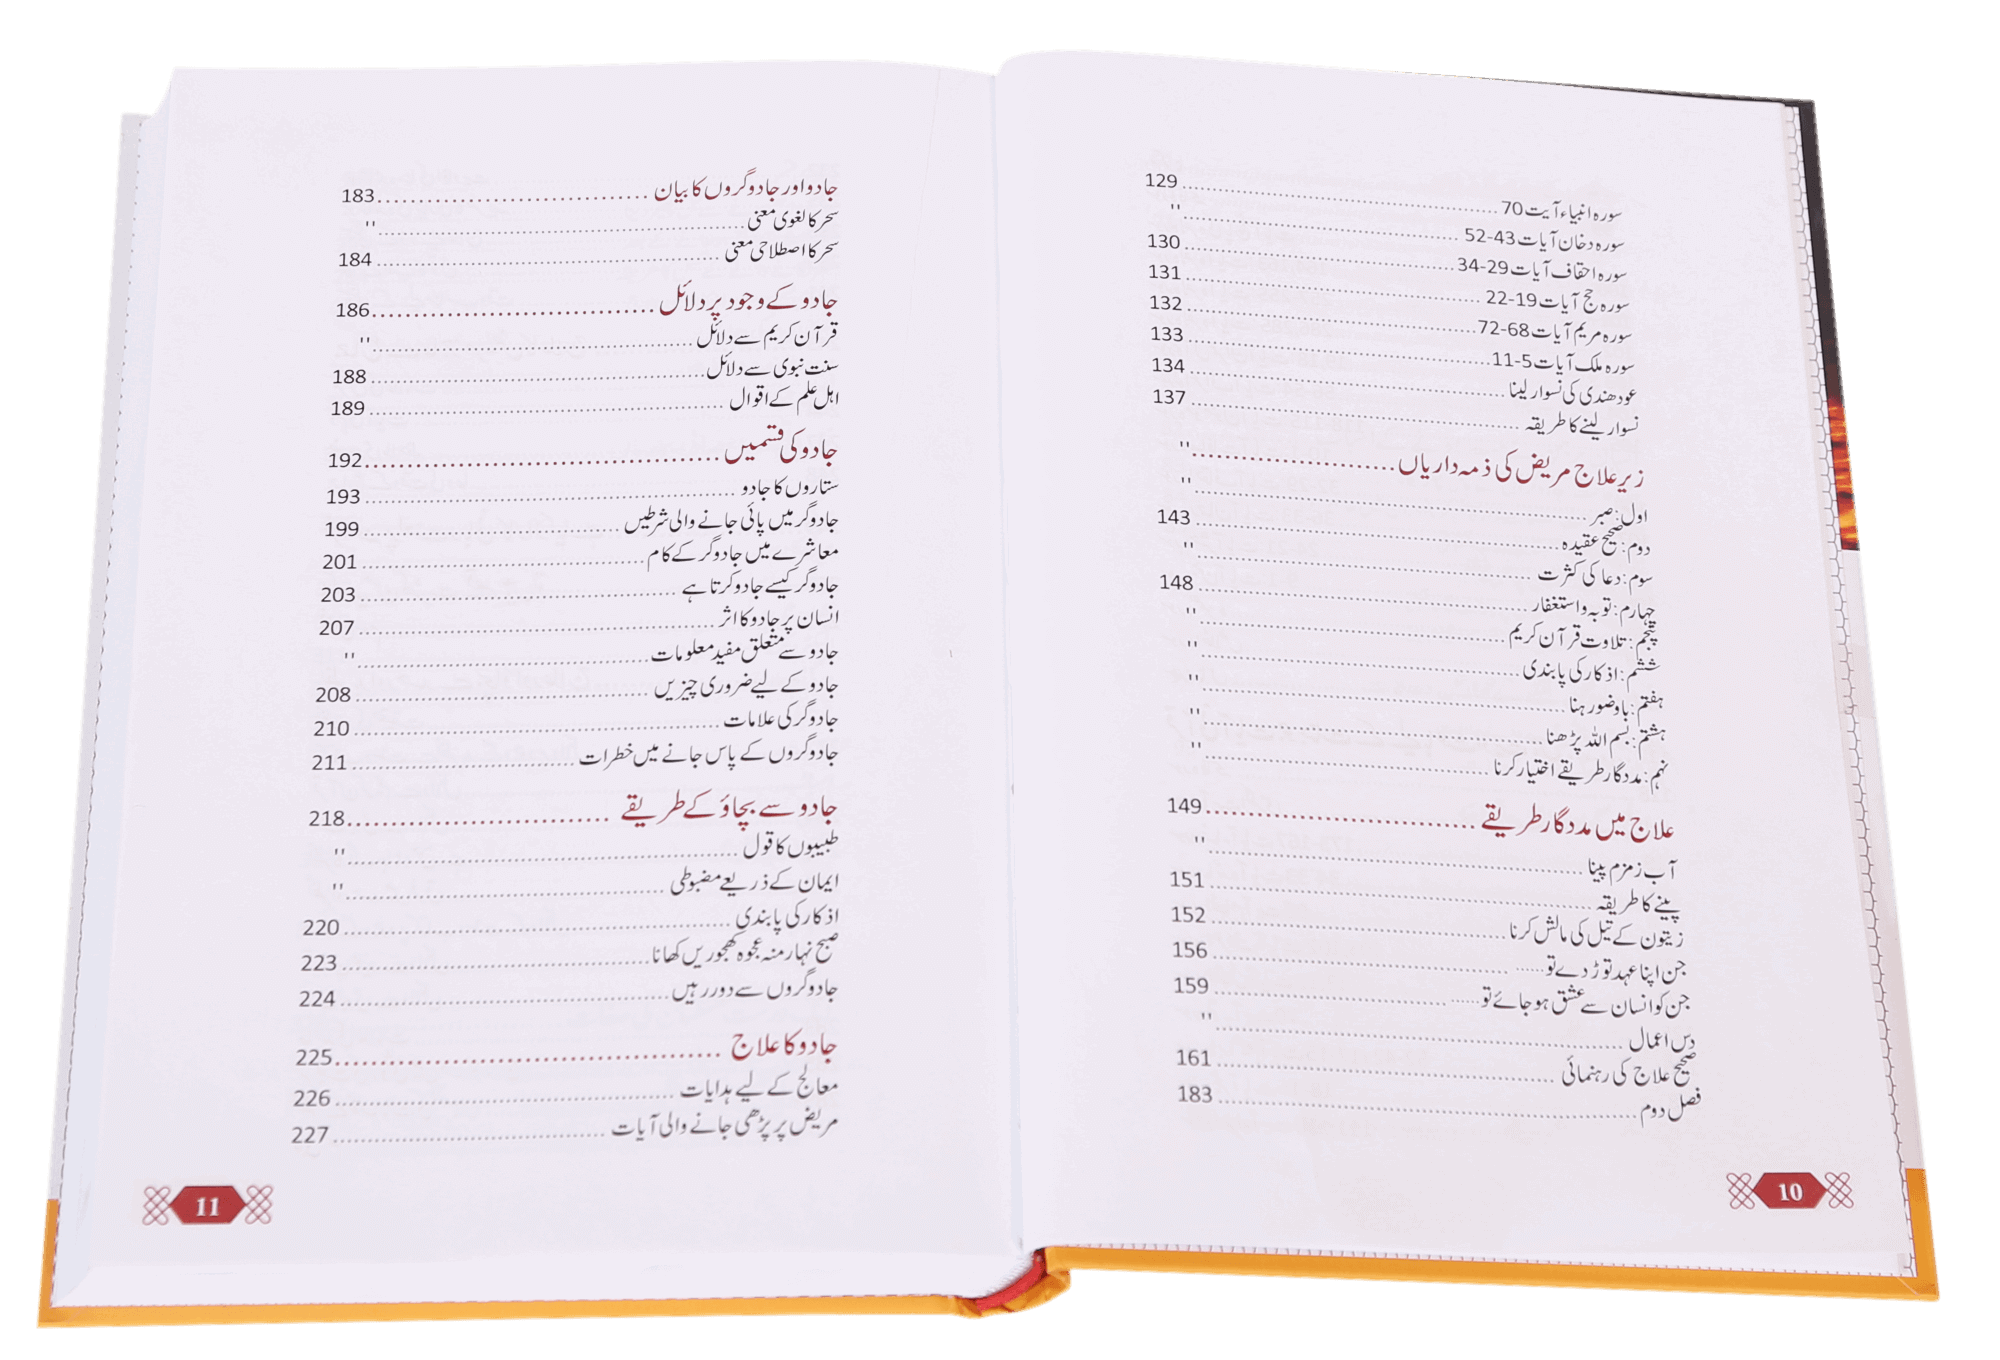 سورہ انبیاء آیت 70 ........ 129
سورہ دخان آیات 43-52 ........ "
سورہ احقاف آیات 29-34 ........ 130
سورہ حج آیات 19-22 ........ 131
سورہ مریم آیات 68-72 ........ 132
سورہ ملک آیات 5-11 ........ 133
عود ھندی کی نسوار لینا ........ 134
نسوار لینے کا طریقہ ........ 137
زیر علاج مریض کی ذمہ داریاں ........ "
اول: صبر ........ "
دوم: صحیح عقیدہ ........ 143
سوم: دعا کی کثرت ........ "
چہارم: توبہ و استغفار ........ 148
پنجم: تلاوت قرآن کریم ........ "
ششم: اذکار کی پابندی ........ "
ہفتم: باوضو رہنا ........ "
ہشتم: بسم اللہ پڑھنا ........ "
نہم: مددگار طریقے اختیار کرنا ........ "
علاج میں مددگار طریقے ........ 149
آب زمزم پینا ........ "
پینے کا طریقہ ........ 151
زیتون کے تیل کی مالش کرنا ........ 152
جن اپنا عہد توڑ دے تو ........ 156
جن کو انسان سے عشق ہو جائے تو ........ 159
دس اعمال ........ "
صحیح علاج کی رہنمائی ........ 161
فصل دوم ........ 183
10
جادو اور جادوگروں کا بیان ........ 183
سحر کا لغوی معنی ........ "
سحر کا اصطلاحی معنی ........ 184
جادو کے وجود پر دلائل ........ 186
قرآن کریم سے دلائل ........ "
سنت نبوی سے دلائل ........ 188
اہل علم کے اقوال ........ 189
جادو کی قسمیں ........ 192
ستاروں کا جادو ........ 193
جادوگر میں پائی جانے والی شرطیں ........ 199
معاشرے میں جادوگر کے کام ........ 201
جادوگر کیسے جادو کرتا ہے ........ 203
انسان پر جادو کا اثر ........ 207
جادو سے متعلق مفید معلومات ........ "
جادو کے لیے ضروری چیزیں ........ 208
جادوگر کی علامات ........ 210
جادوگروں کے پاس جانے میں خطرات ........ 211
جادو سے بچاؤ کے طریقے ........ 218
طبیبوں کا قول ........ "
ایمان کے ذریعے مضبوطی ........ "
اذکار کی پابندی ........ 220
صبح نہار منہ عجوہ کھجوریں کھانا ........ 223
جادوگروں سے دور رہیں ........ 224
جادو کا علاج ........ 225
معالج کے لیے ہدایات ........ 226
مریض پر پڑھی جانے والی آیات ........ 227
11